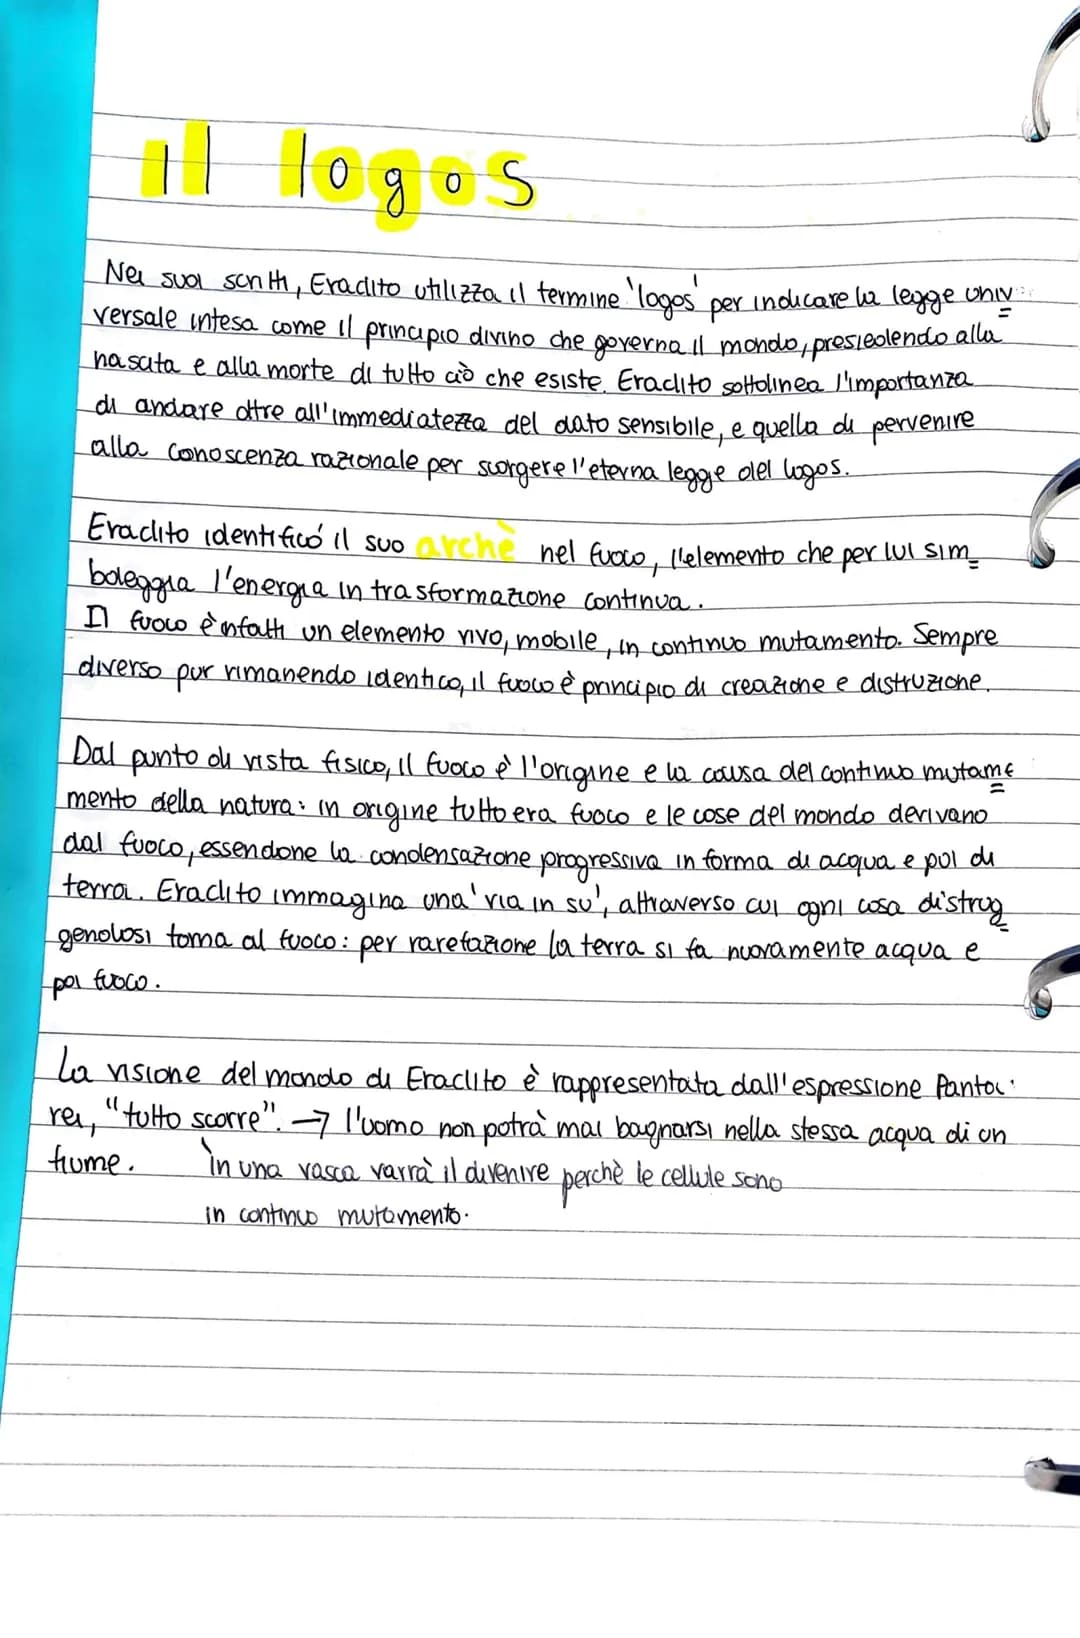 il logos
Nei suoi scritti, Eraclito utilizza il termine 'logos' per indicare la legge univ
versale intesa come il principio divino che governa il mondo, presiedendo alla
nascita e alla morte di tutto ciò che esiste. Eraclito sottolinea l'importanza
di andare oltre all'immediatezza del dato sensibile, e quella di pervenire
alla conoscenza razionale per scorgere l'eterna legge del logos.
Eraclito identificó il suo archè nel fuoco, l'elemento che per lui sim=
boleggia l'energia in trasformazione continua.
Il fuoco è infatti un elemento vivo, mobile, in continuo mutamento. Sempre
diverso pur rimanendo identico, il fuoco è principio di creazione e distruzione.
Dal punto di vista fisico, il fuoco è l'origine e la causa del continuo mutame=
mento della natura: in origine tutto era fuoco e le cose del mondo derivano
dal fuoco, essendone la condensazione progressiva in forma di acqua e poi di
terra. Eraclito immagina una 'via in su', attraverso cui ogni cosa distrug=
gendosi torna al fuoco: per rarefazione la terra si fa nuovamente acqua e
poi fuoco.
La visione del mondo di Eraclito è rappresentata dall'espressione Panta
rei, "tutto scorre". → l'uomo non potrà mai bagnarsi nella stessa acqua di un
fiume. In una vasca varrà il divenire perchè le cellule sono
in continuo mutamento.